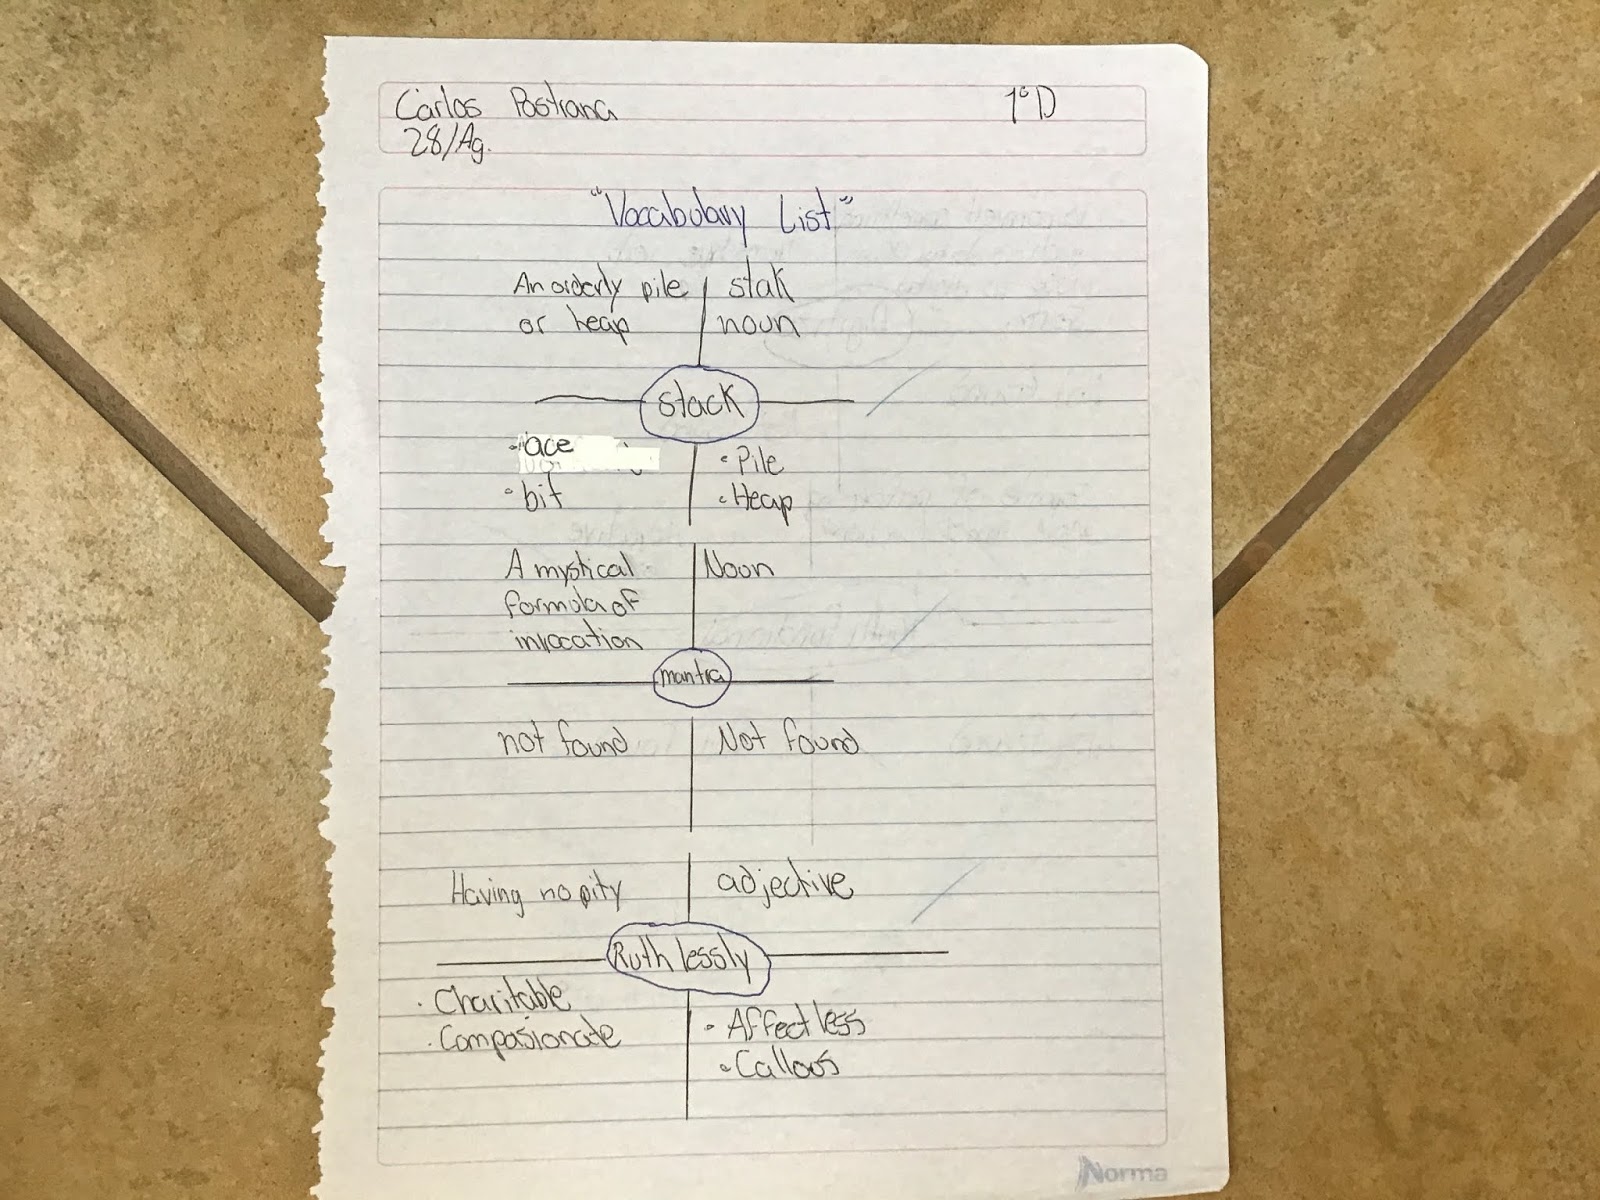 Carlos Pastrana 1°D
28/Ag.
"Vocabulary List"
An orderly pile stak
or heap noun
stack
ace Pile
bit Heap
A mystical Noun
formula of
invocation
mantra
not found Not found
Having no pity adjective
Ruthlessly
Charitable
Compasionate Affectless
Callous
Norma